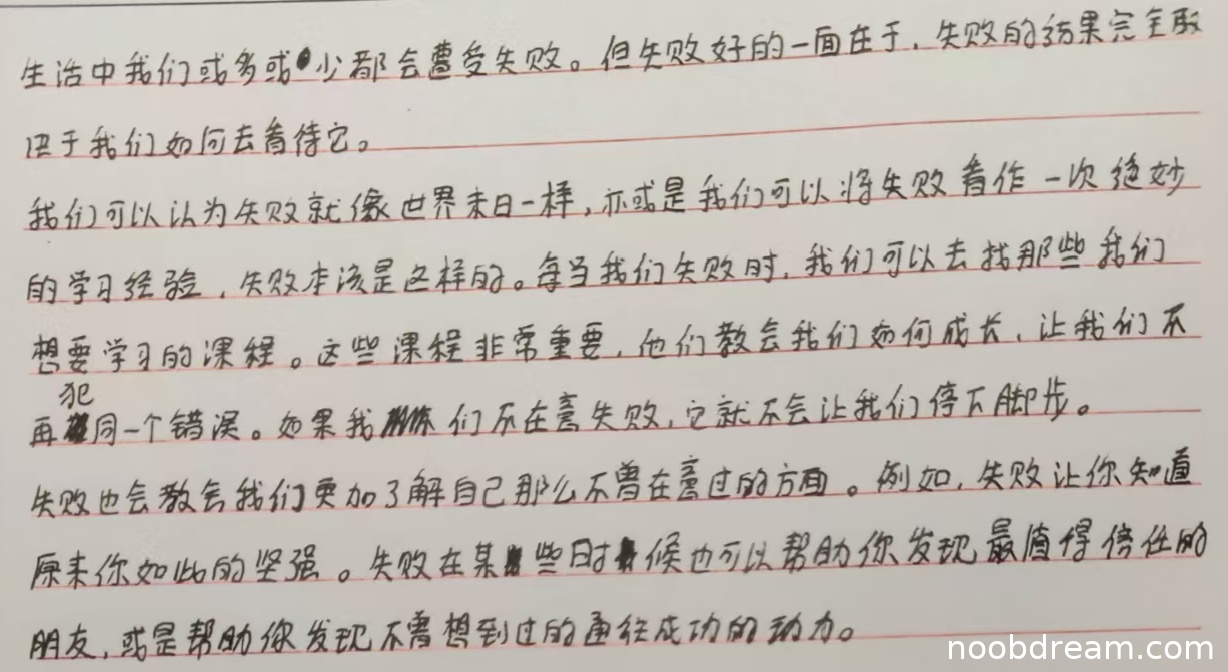 生活中我们或多或少都会遭受失败。但失败好的一面在于，失败的结果完全取
决于我们如何去看待它。
我们可以认为失败就像世界末日一样，亦或是我们可以将失败看作一次绝妙
的学习经验，失败本该是这样的。每当我们失败时，我们可以去找那些我们
想要学习的课程。这些课程非常重要，他们教会我们如何成长，让我们不
再犯同一个错误。如果我们不在意失败，它就不会让我们停下脚步。
失败也会教会我们更加了解自己那么不曾在意过的方面。例如，失败让你知道
原来你如此的坚强。失败在某些时候也可以帮助你发现最值得信任的
朋友，或是帮助你发现不曾想到过的通往成功的动力。
noobdream.com